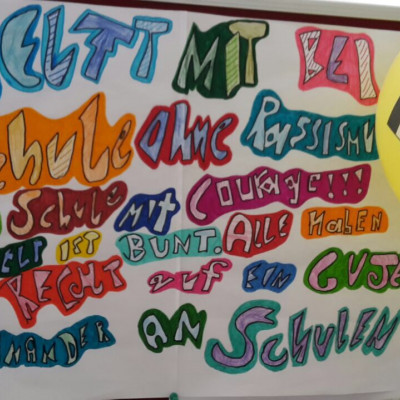 ELFT MIT BEI
chule ohne Rassismu
Schule mit COURAGE!!!
ELT IST BUNT. ALLE HaBEN
RECHT auf EIN GUTE
NANDER AN SCHULEN